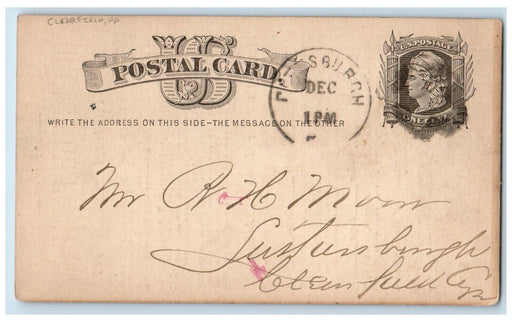 CLEARFIELD, PA
US
POSTAL CARD
U.S. POSTAGE
ONE CENT
PITTSBURGH
DEC
1 PM
WRITE THE ADDRESS ON THIS SIDE—THE MESSAGE ON THE OTHER
Mr R H Moore
Clearfield Co